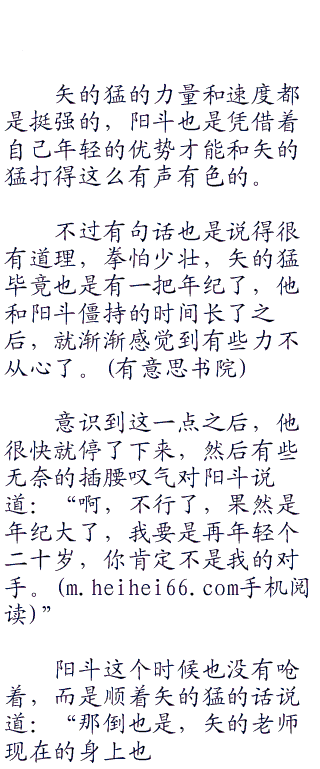 矢的猛的力量和速度都
是挺强的，阳斗也是凭借着
自己年轻的优势才能和矢的
猛打得这么有声有色的。
不过有句话也是说得很
有道理，拳怕少壮，矢的猛
毕竟也是有一把年纪了，他
和阳斗僵持的时间长了之
后，就渐渐感觉到有些力不
从心了。(有意思书院)
意识到这一点之后，他
很快就停了下来，然后有些
无奈的插腰叹气对阳斗说
道：“啊，不行了，果然是
年纪大了，我要是再年轻个
二十岁，你肯定不是我的对
手。(m.heihei66.com手机阅
读)”
阳斗这个时候也没有呛
着，而是顺着矢的猛的话说
道：“那倒也是，矢的老师
现在的身上也